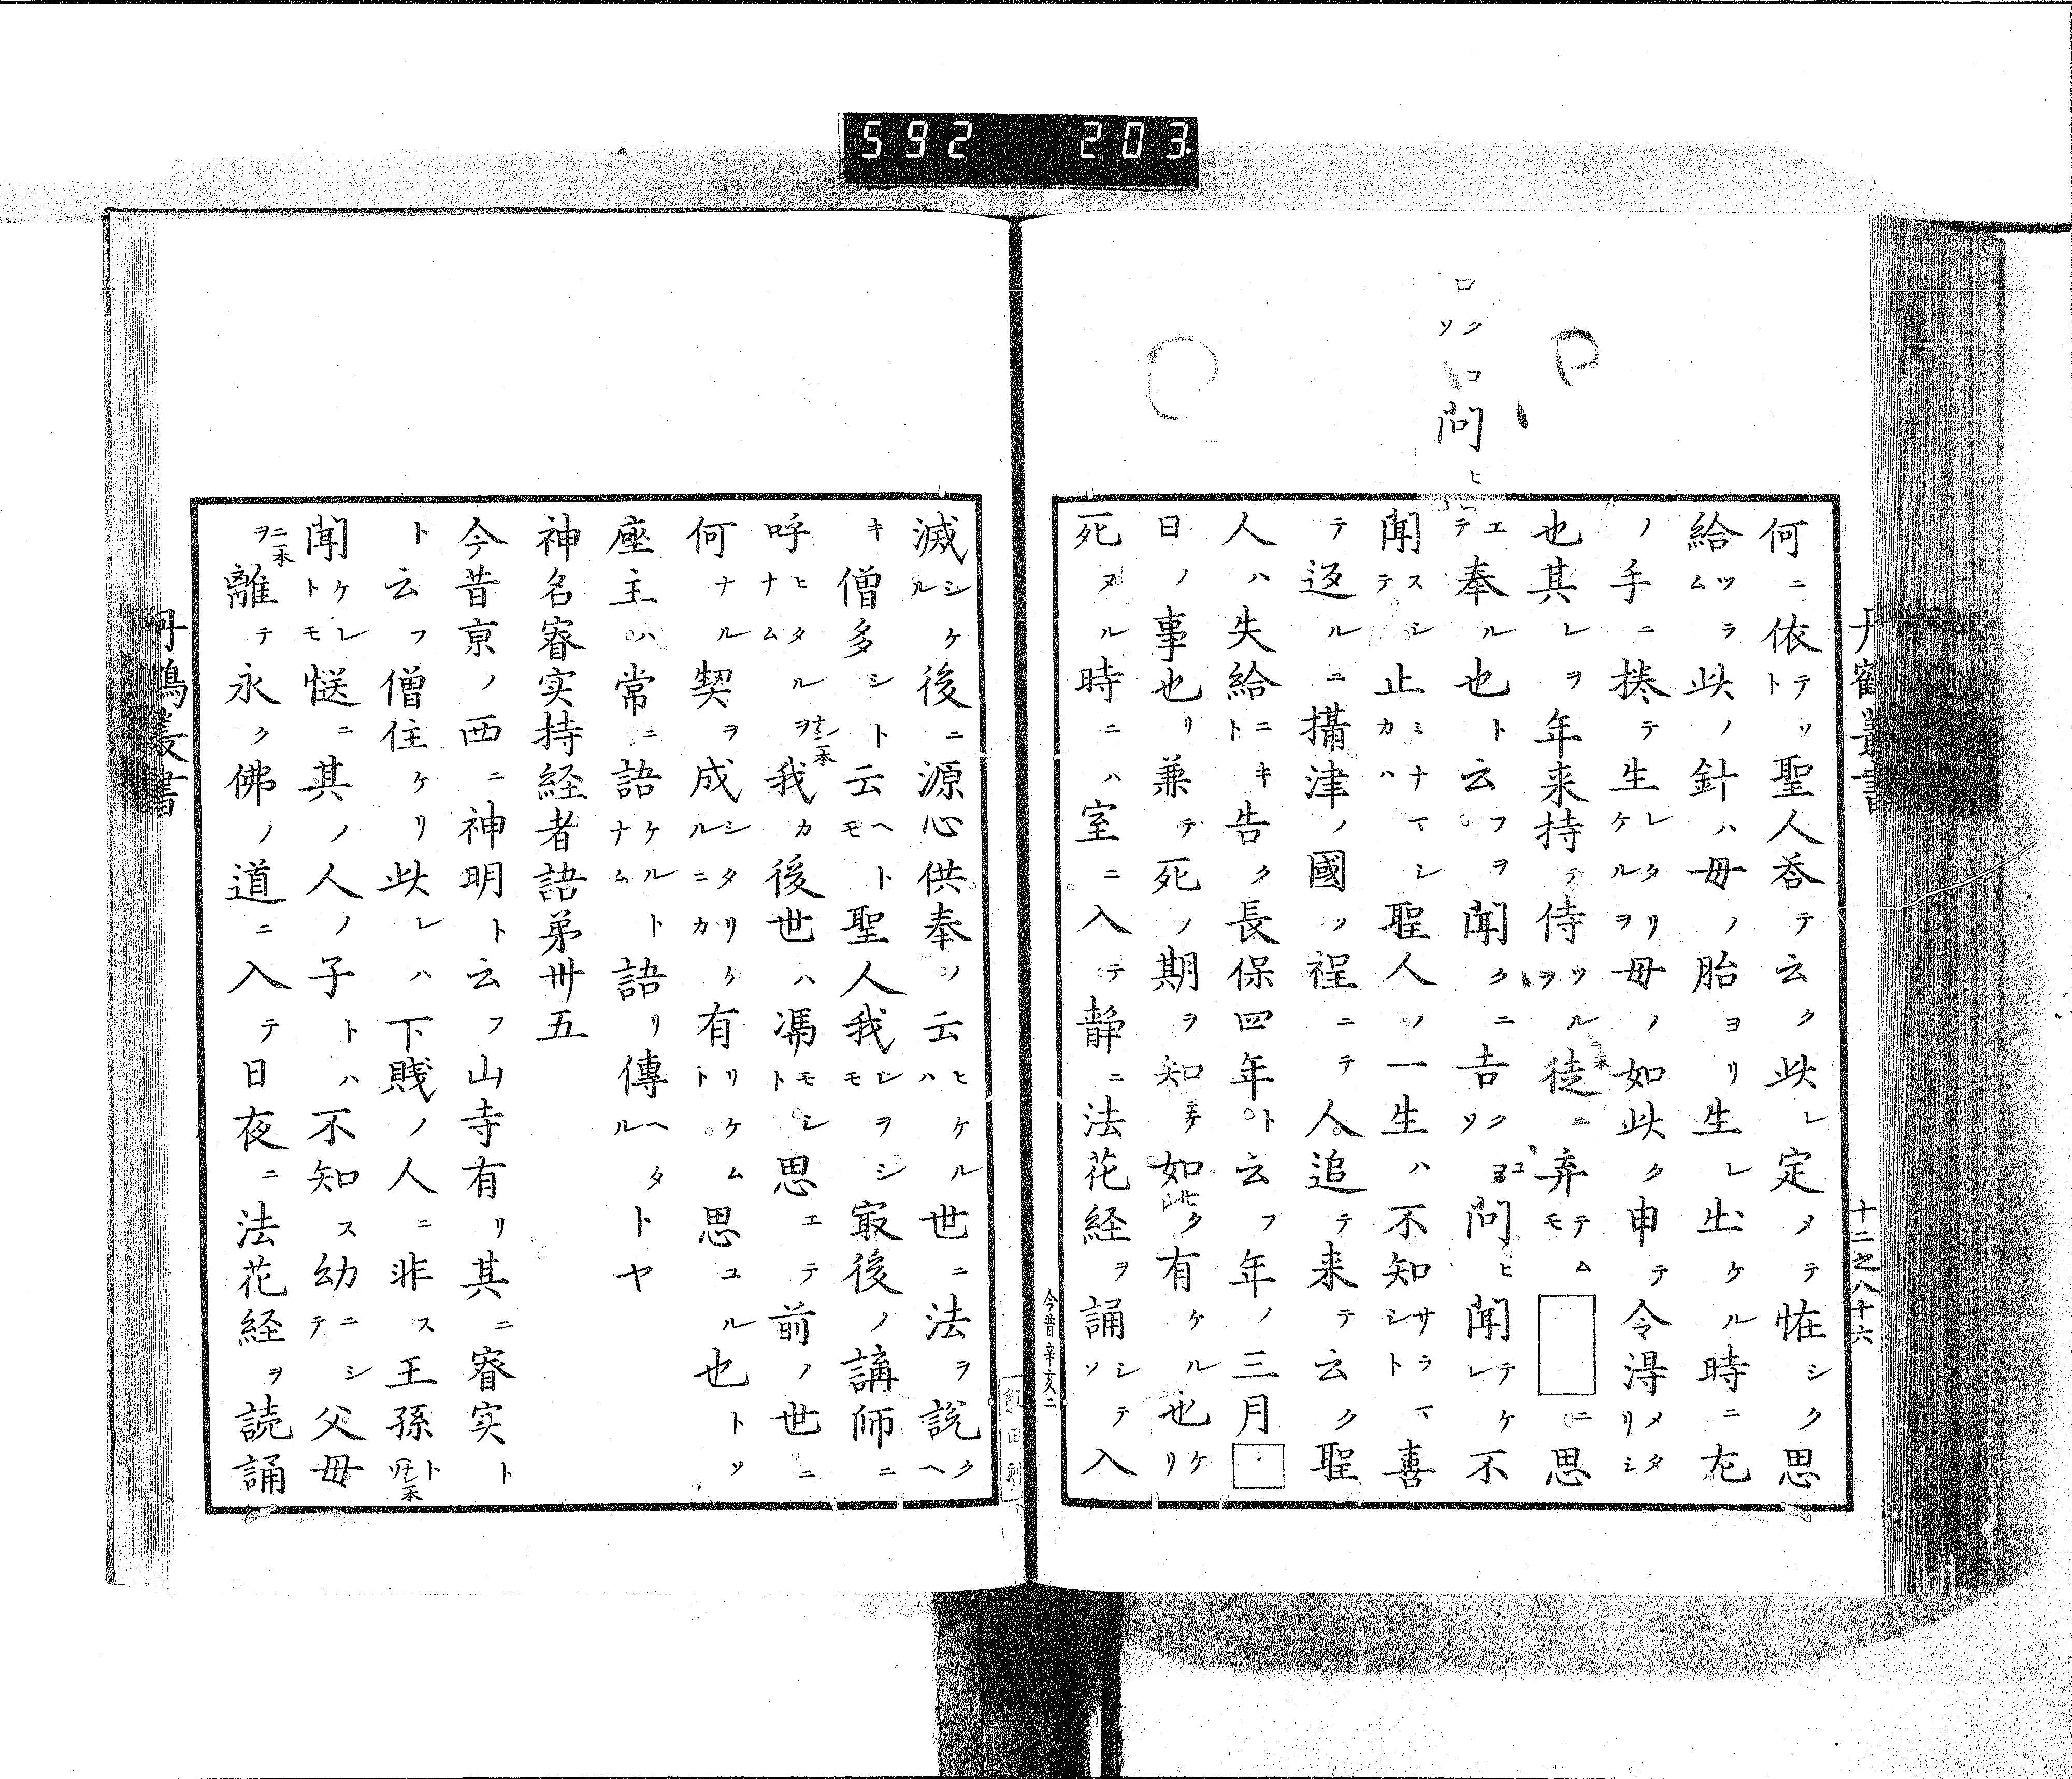 592 203
丹鶴叢書
十二之八十六
問ヒ
何ニ依テソト聖人呑テ云ク此レ定メテ恠シク思
給ツラム此ノ針ハ母ノ胎ヨリ生レ出ケル時ニ左
ノ手ニ捲テ生レタリケルヲ母ノ如此ク申テ令得メタリシ
也其レヲ年来持テ侍ツルヲ徒ニ弃テムモ□ニ思
エテ奉ル也ト云フヲ聞クニ吉クソ問ヒ聞テケレ不
聞スシテ止ミナマシカハ聖人ノ一生ハ不知サラマシト喜
テ返ルニ攝津ノ國ノ程ニテ人追テ来テ云ク聖
人ハ失給ニキト告ク長保四年ト云フ年ノ三月□
日ノ事也リ兼テ死ノ期ヲ知テ如此ク有ケル也ケリ
死ヌル時ニハ室ニ入テ静ニ法花経ヲ誦シテソ入
今昔辛亥二
滅シケル後ニ源心供奉ノ云ヒケルハ世ニ法ヲ説ク
キ僧多シト云ヘトモ聖人我レヲシモ冣後ノ講師ニ
呼ヒタルナムヲ我カ後世ハ馮モシト思エテ前ノ世ニ
何ナル契ヲ成シタリケルニカ有リケムト思ユル也トソ
座主ハ常ニ語ケルトナム語リ傳ヘタルトヤ
神名睿実持経者語苐卅五
今昔京ノ西ニ神明ト云フ山寺有リ其ニ睿実ト
ト云フ僧住ケリ此レハ下賎ノ人ニ非ス王孫ト
聞ケレトモ慥ニ其ノ人ノ子トハ不知ス幼ニシテ父母
ヲ離テ永ク佛ノ道ニ入テ日夜ニ法花経ヲ読誦
丹鶴叢書